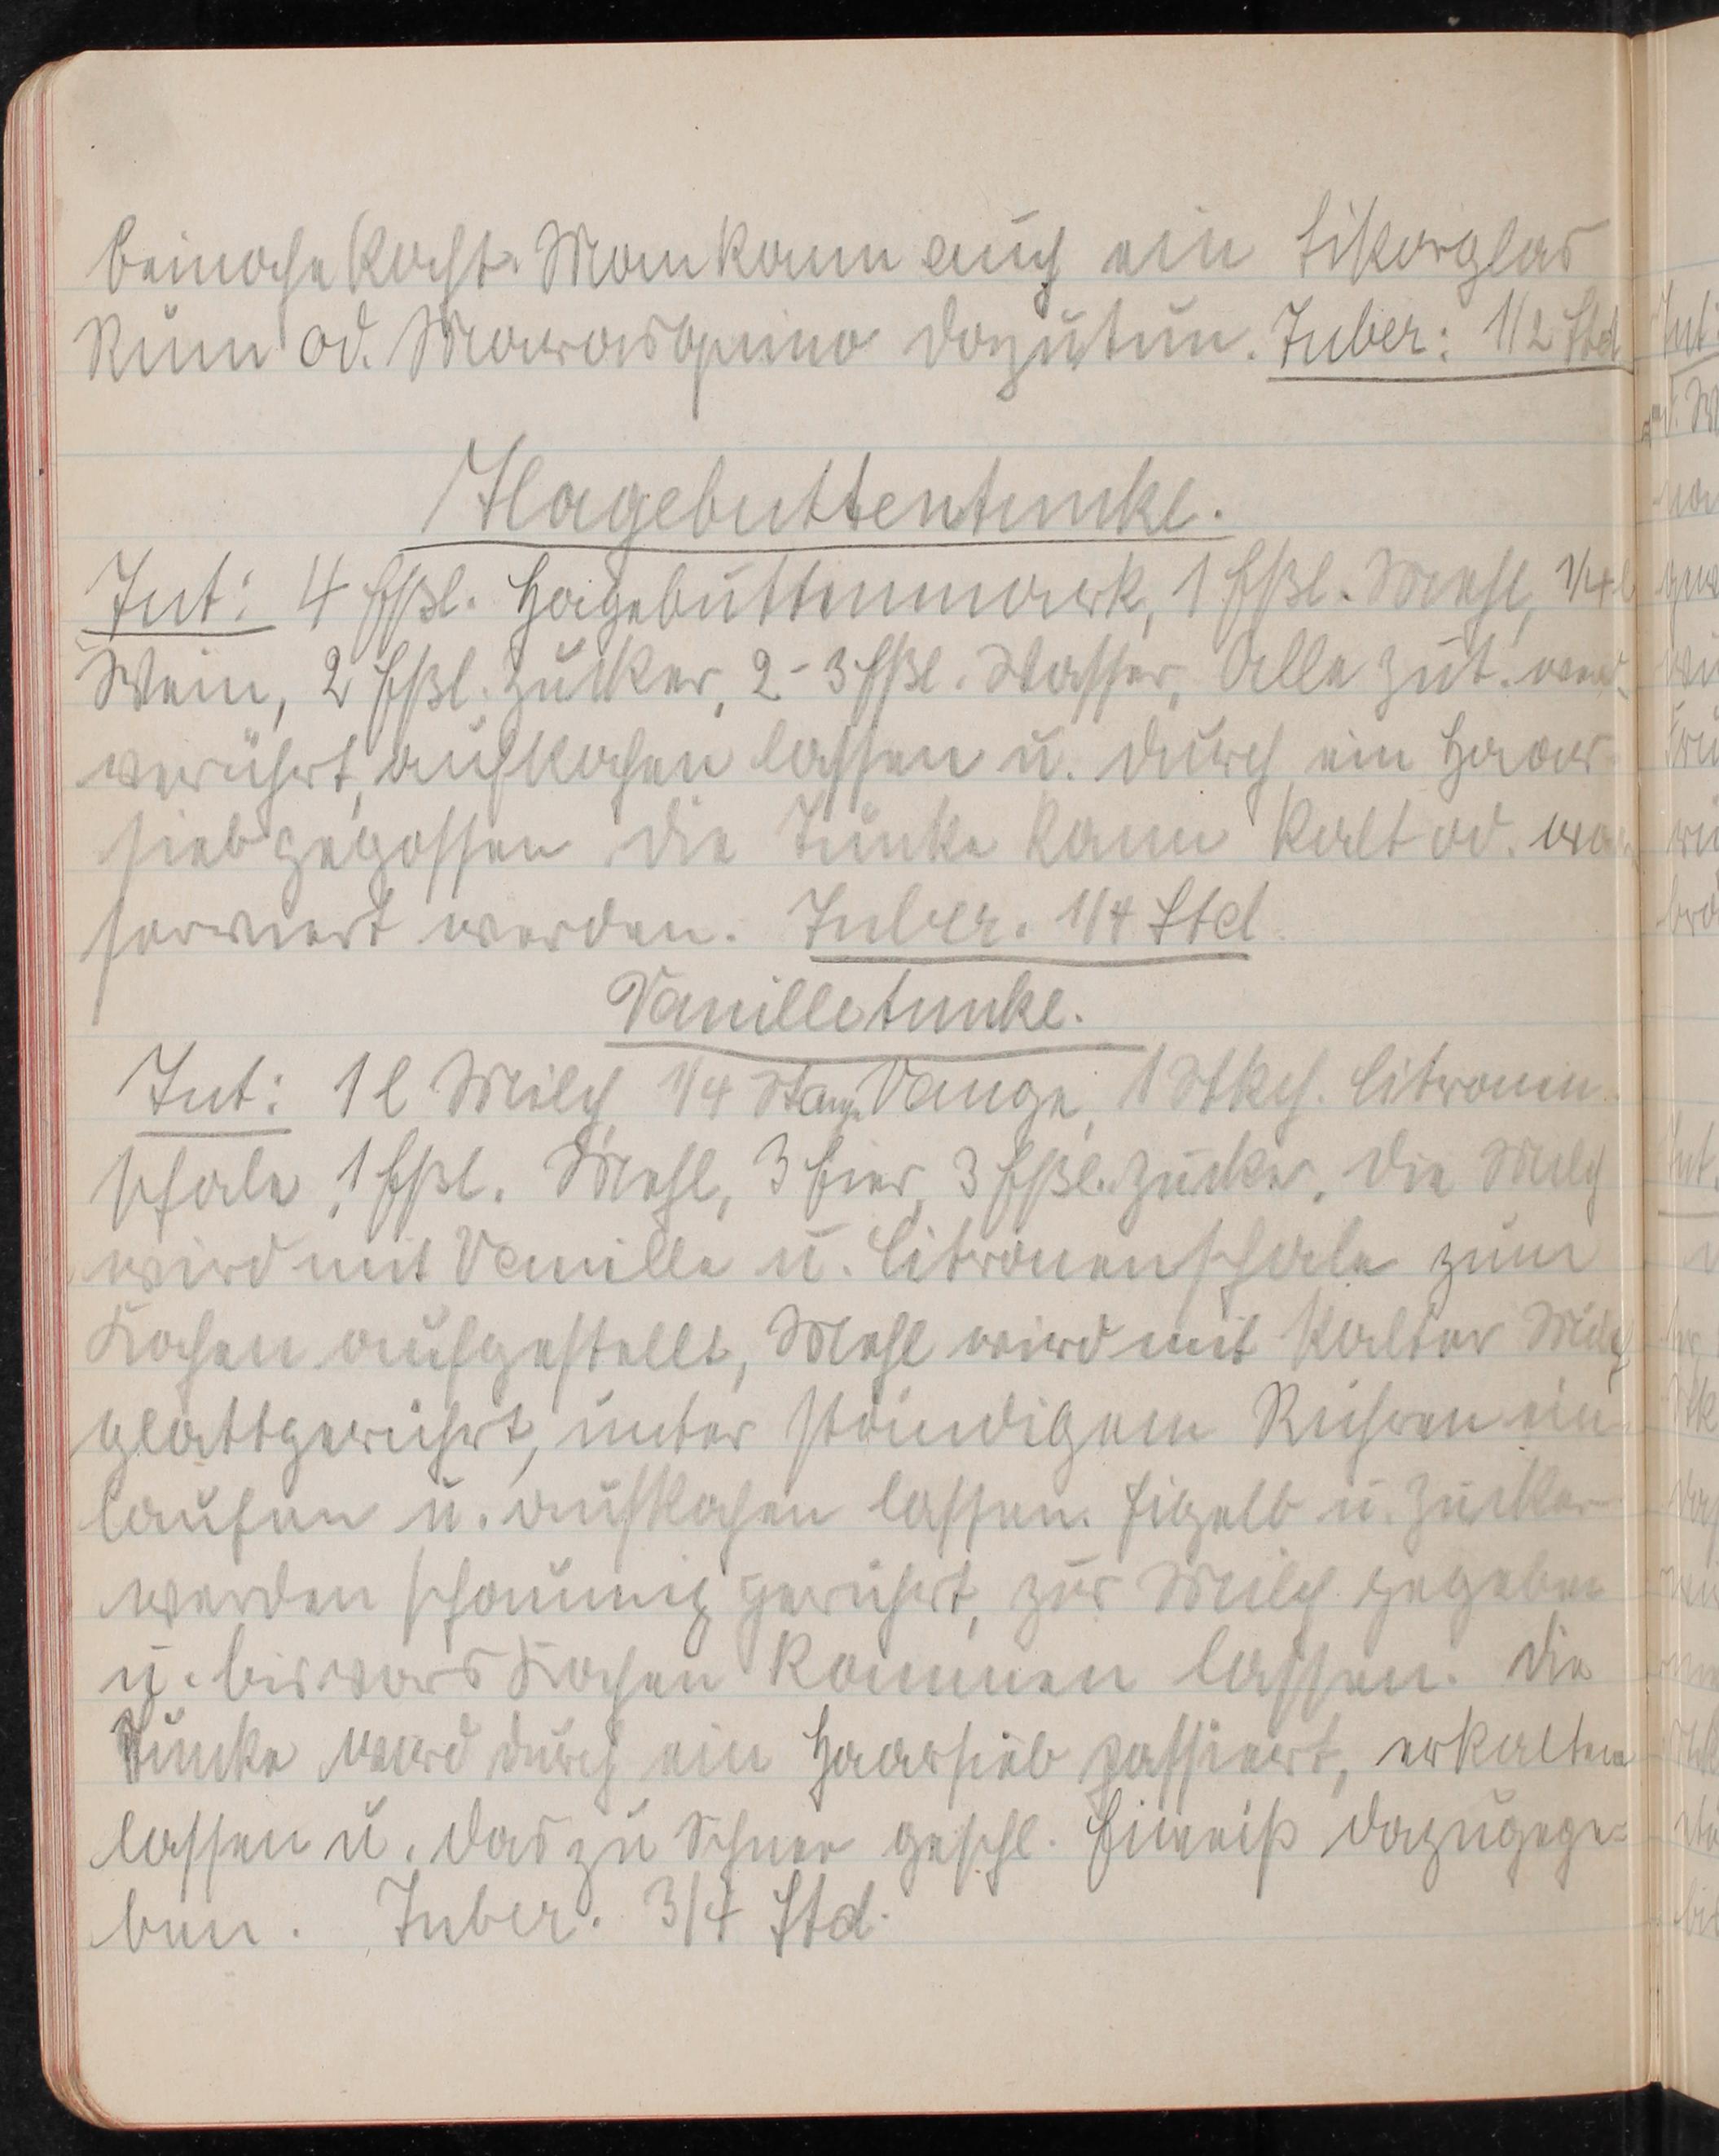 beinahe kocht. Man kann auch ein Likörglas
Rum od. Maraschino dazutun. Zuber: 1/2 Std
Hagebuttentunke.
Zut: 4 Eßl. Hagebuttenmark, 1 Eßl. Mehl, 1/4 l
Wein, 2 Eßl. Zucker, 2-3 Eßl. Wasser, Alle Zut. werd.
verrührt, aufkochen lassen u. durch ein Haar-
sieb gegossen die Tunke kann kalt od. war
serviert werden. Zuber. 1/4 Std
Vanilletunke.
Zut: 1 l Milch 1/4 Stang. 1 Stkch. Citronen
schale, 1 Eßl. Mehl, 3 Eier, 3 Eßl. Zucker. Die Milch
wird mit Vanille u. Citronenschale zum
Kochen aufgestellt, Mehl wird mit kalter Milch
glattgerührt, unter ständigem Rühren ein
laufen u. aufkochen lassen. Eigelb u. Zucker
werden schaumig gerührt, zur Milch gegeben
u. bis vors Kochen kommen lassen. Die
Tunke wird durch ein Haarsieb passiert, erkalten
lassen u. das zu Schnee geschl. Eiweiß dazugege=
ben. Zuber. 3/4 Std.